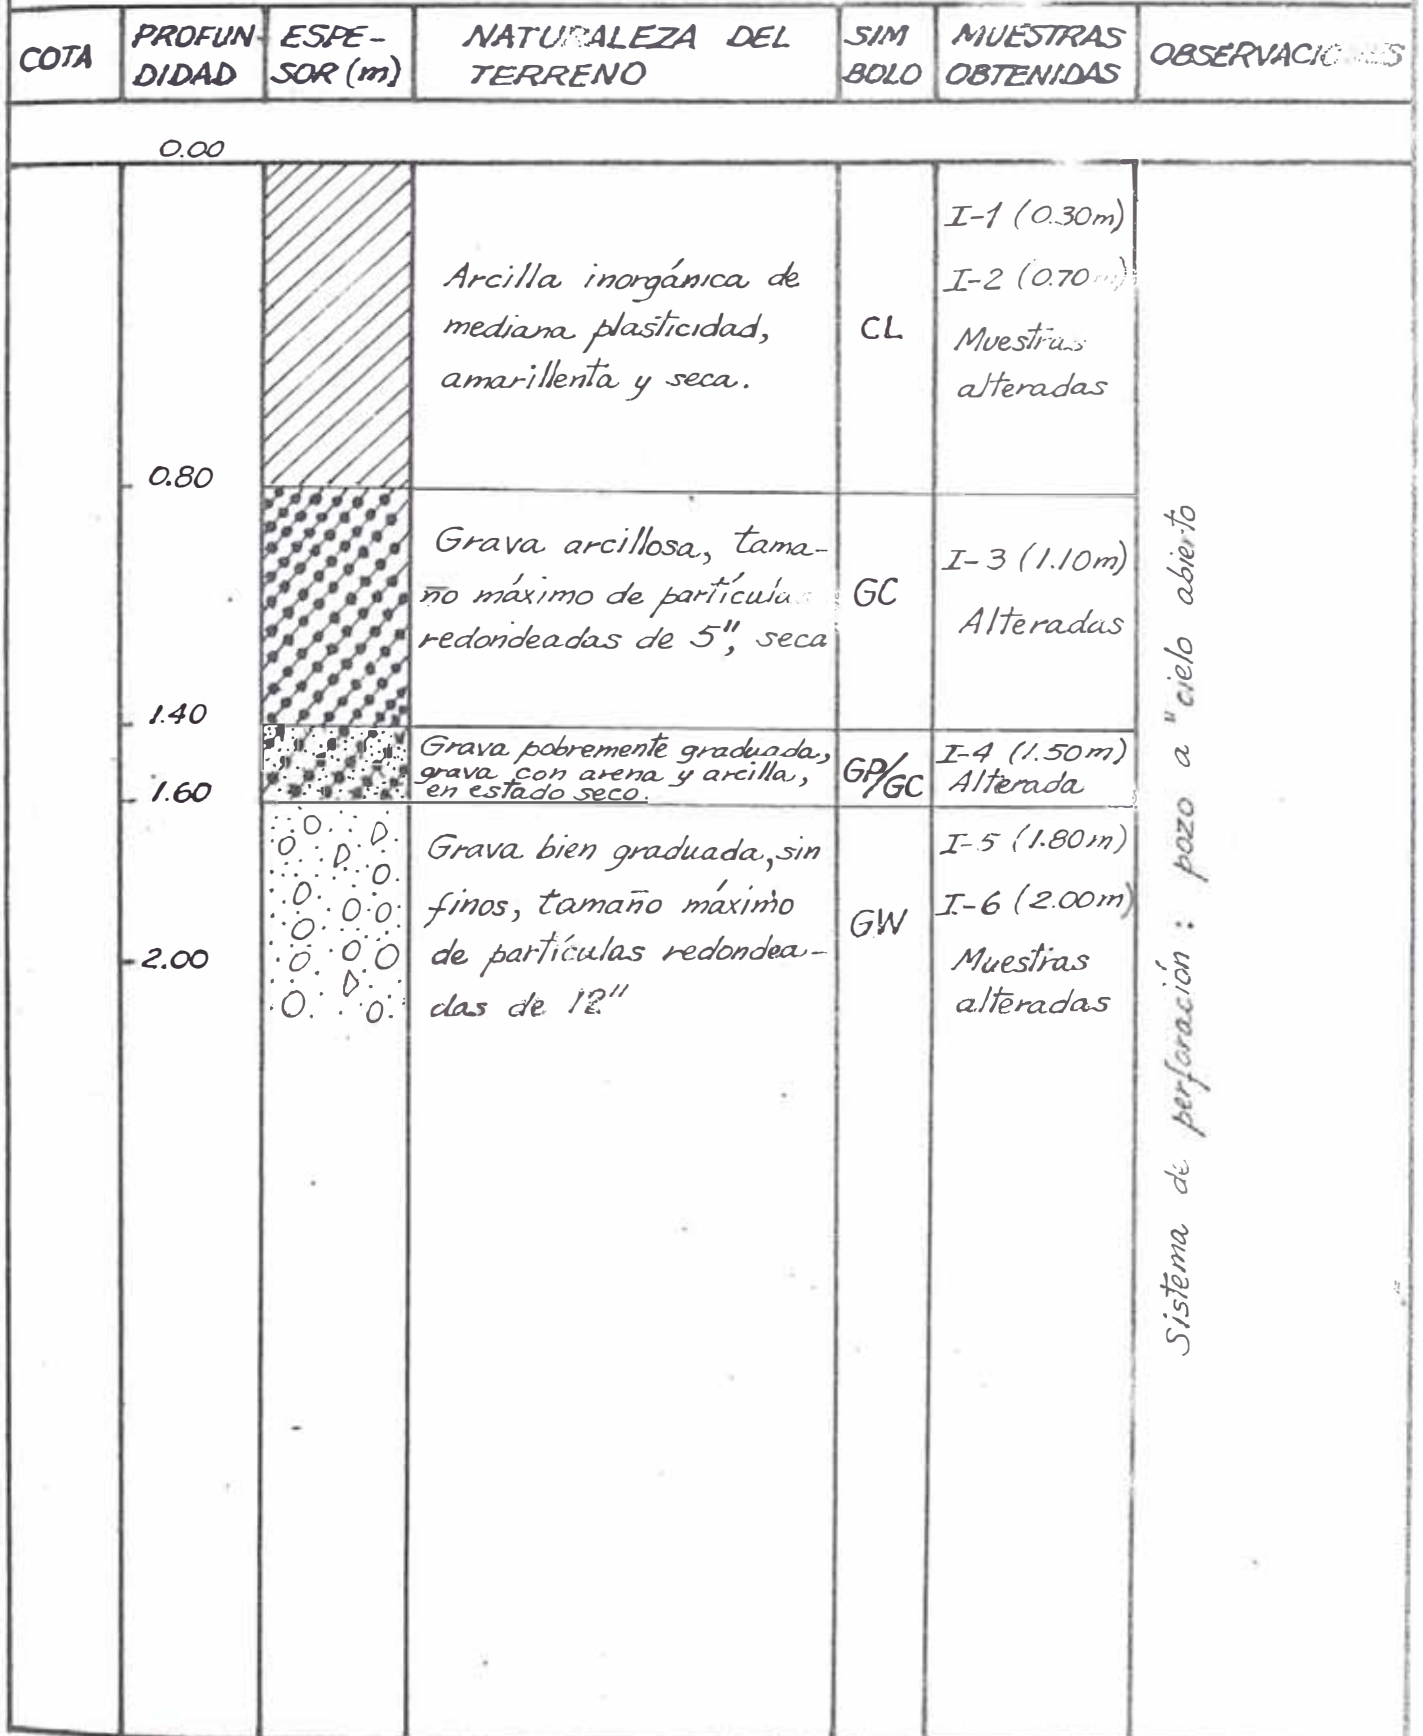 COTA
PROFUN-
DIDAD
ESPE-
SOR (m)
NATURALEZA DEL
TERRENO
SIM
BOLO
MUESTRAS
OBTENIDAS
OBSERVACIONES
0.00
Arcilla inorgánica de
mediana plasticidad,
amarillenta y seca.
CL
I-1 (0.30m)
I-2 (0.70m)
Muestras
alteradas
0.80
Grava arcillosa, tama-
ño máximo de partícula
redondeadas de 5", seca
GC
I-3 (1.10m)
Alteradas
1.40
Grava pobremente graduada,
grava con arena y arcilla,
en estado seco.
GP/GC
I-4 (1.50m)
Alterada
1.60
Grava bien graduada, sin
finos, tamaño máximo
de partículas redondea-
das de 12"
GW
I-5 (1.80m)
I-6 (2.00m)
Muestras
alteradas
2.00
Sistema de perforación : pozo a "cielo abierto